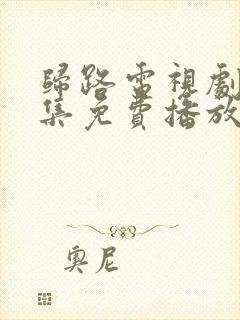 歸路電視劇
集免費播放
奧尼